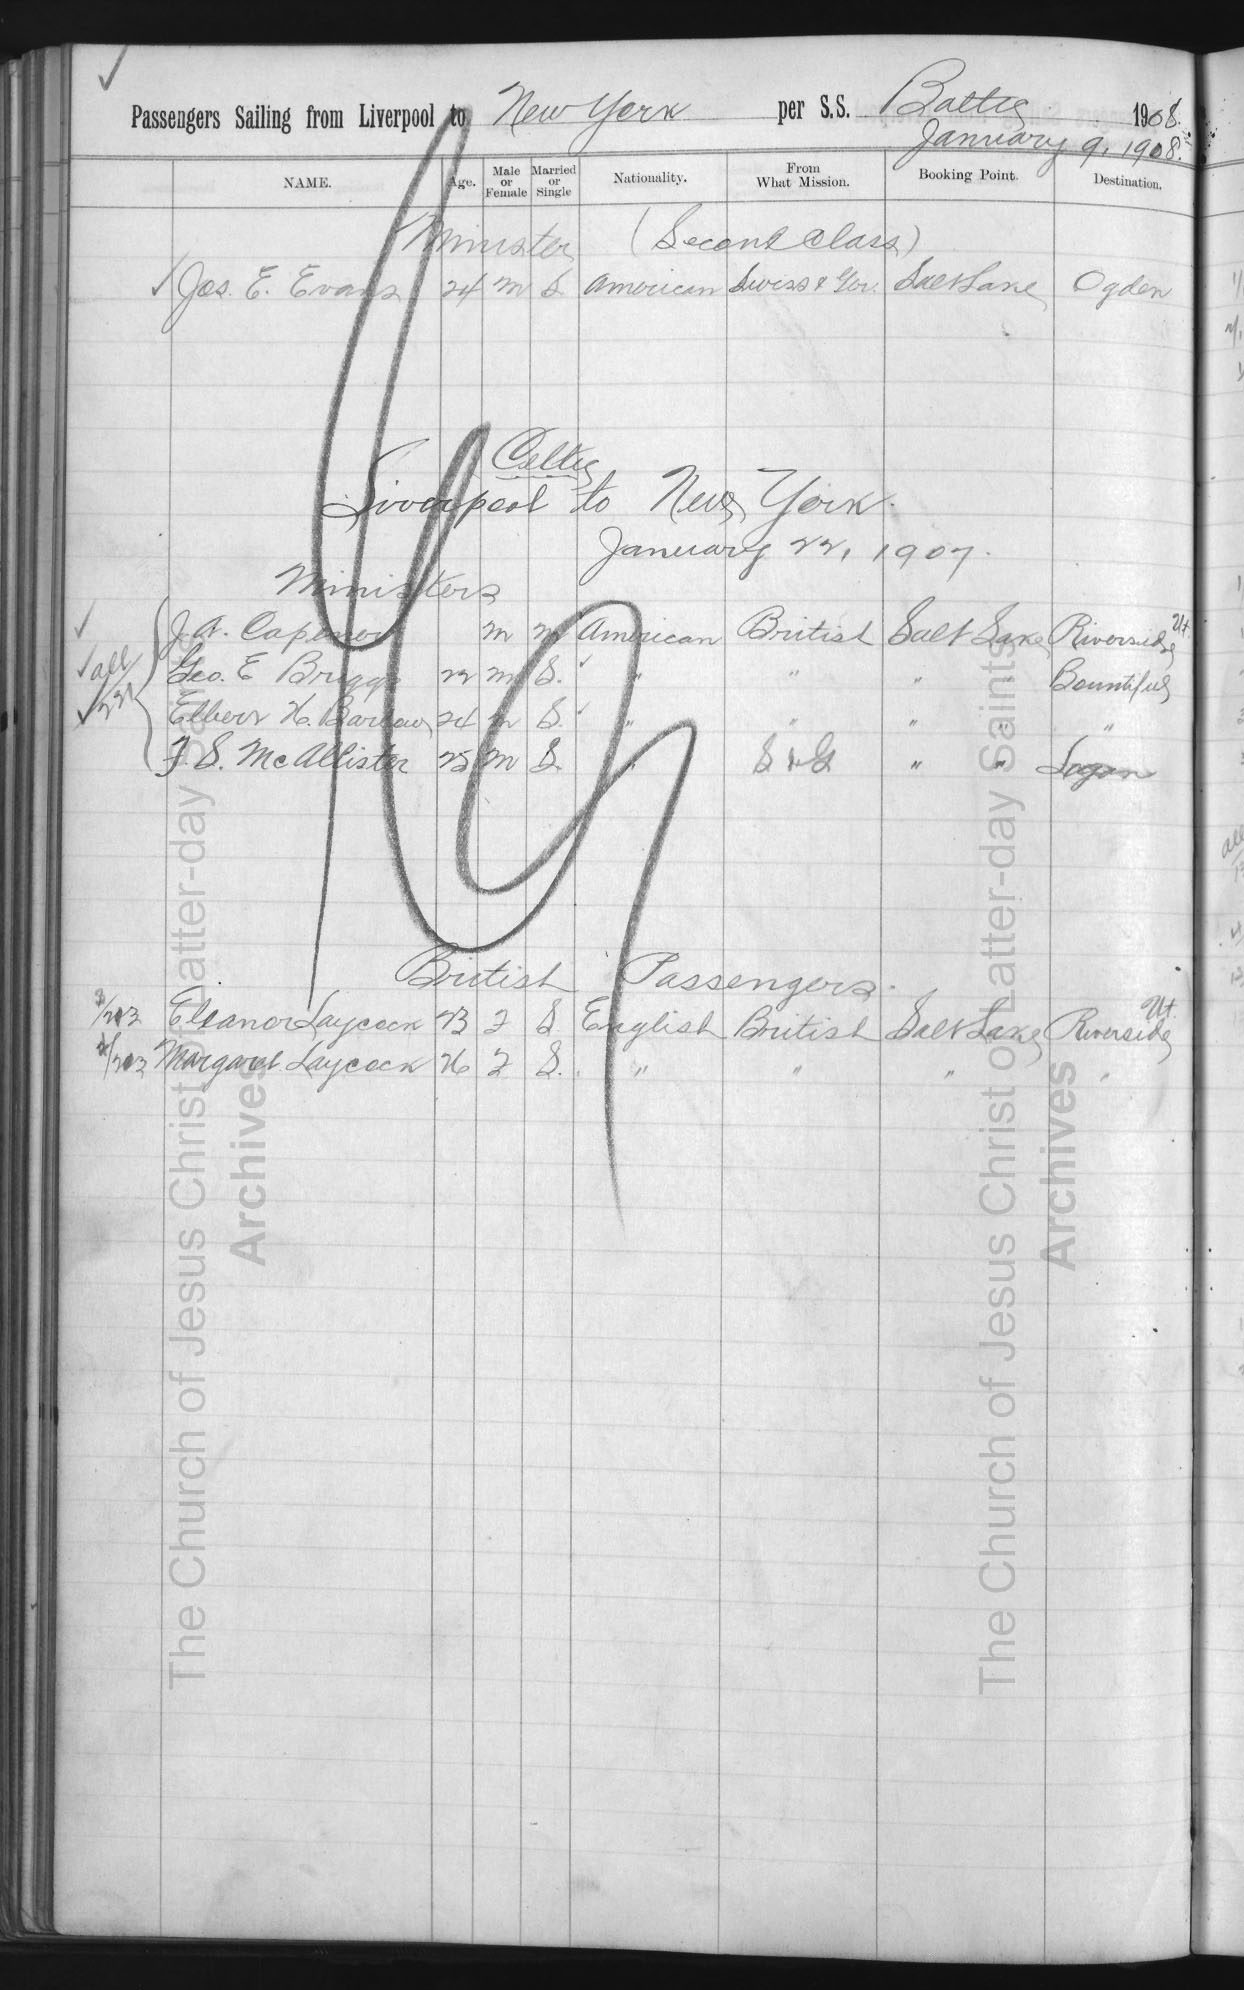 Passengers Sailing from Liverpool to New York per S.S. Baltic 1908.
January 9, 1908.
NAME. Age. Male or Female Married or Single Nationality. From What Mission. Booking Point. Destination.
Minister (Second Class)
Jos. E. Evans 24 m S American Swiss & Ger. Salt Lake Ogden
Celtic
Liverpool to New York.
January 22, 1907.
Ministers
J. A. Capener m m American British Salt Lake Riverside Ut.
all Geo. E Briggs 22 m S. " " " Bountiful
221 H. Barlow 24 m S. " " " " "
J. S. McAllister 25 m S. " S & G " " Logan
British Passengers.
Eleanor Laycock S. English British Salt Lake Riverside Ut.
Margaret Laycock S. " " " "
The Church of Jesus Christ of Latter-day Saints
Archives
The Church of Jesus Christ of Latter-day Saints
Archives